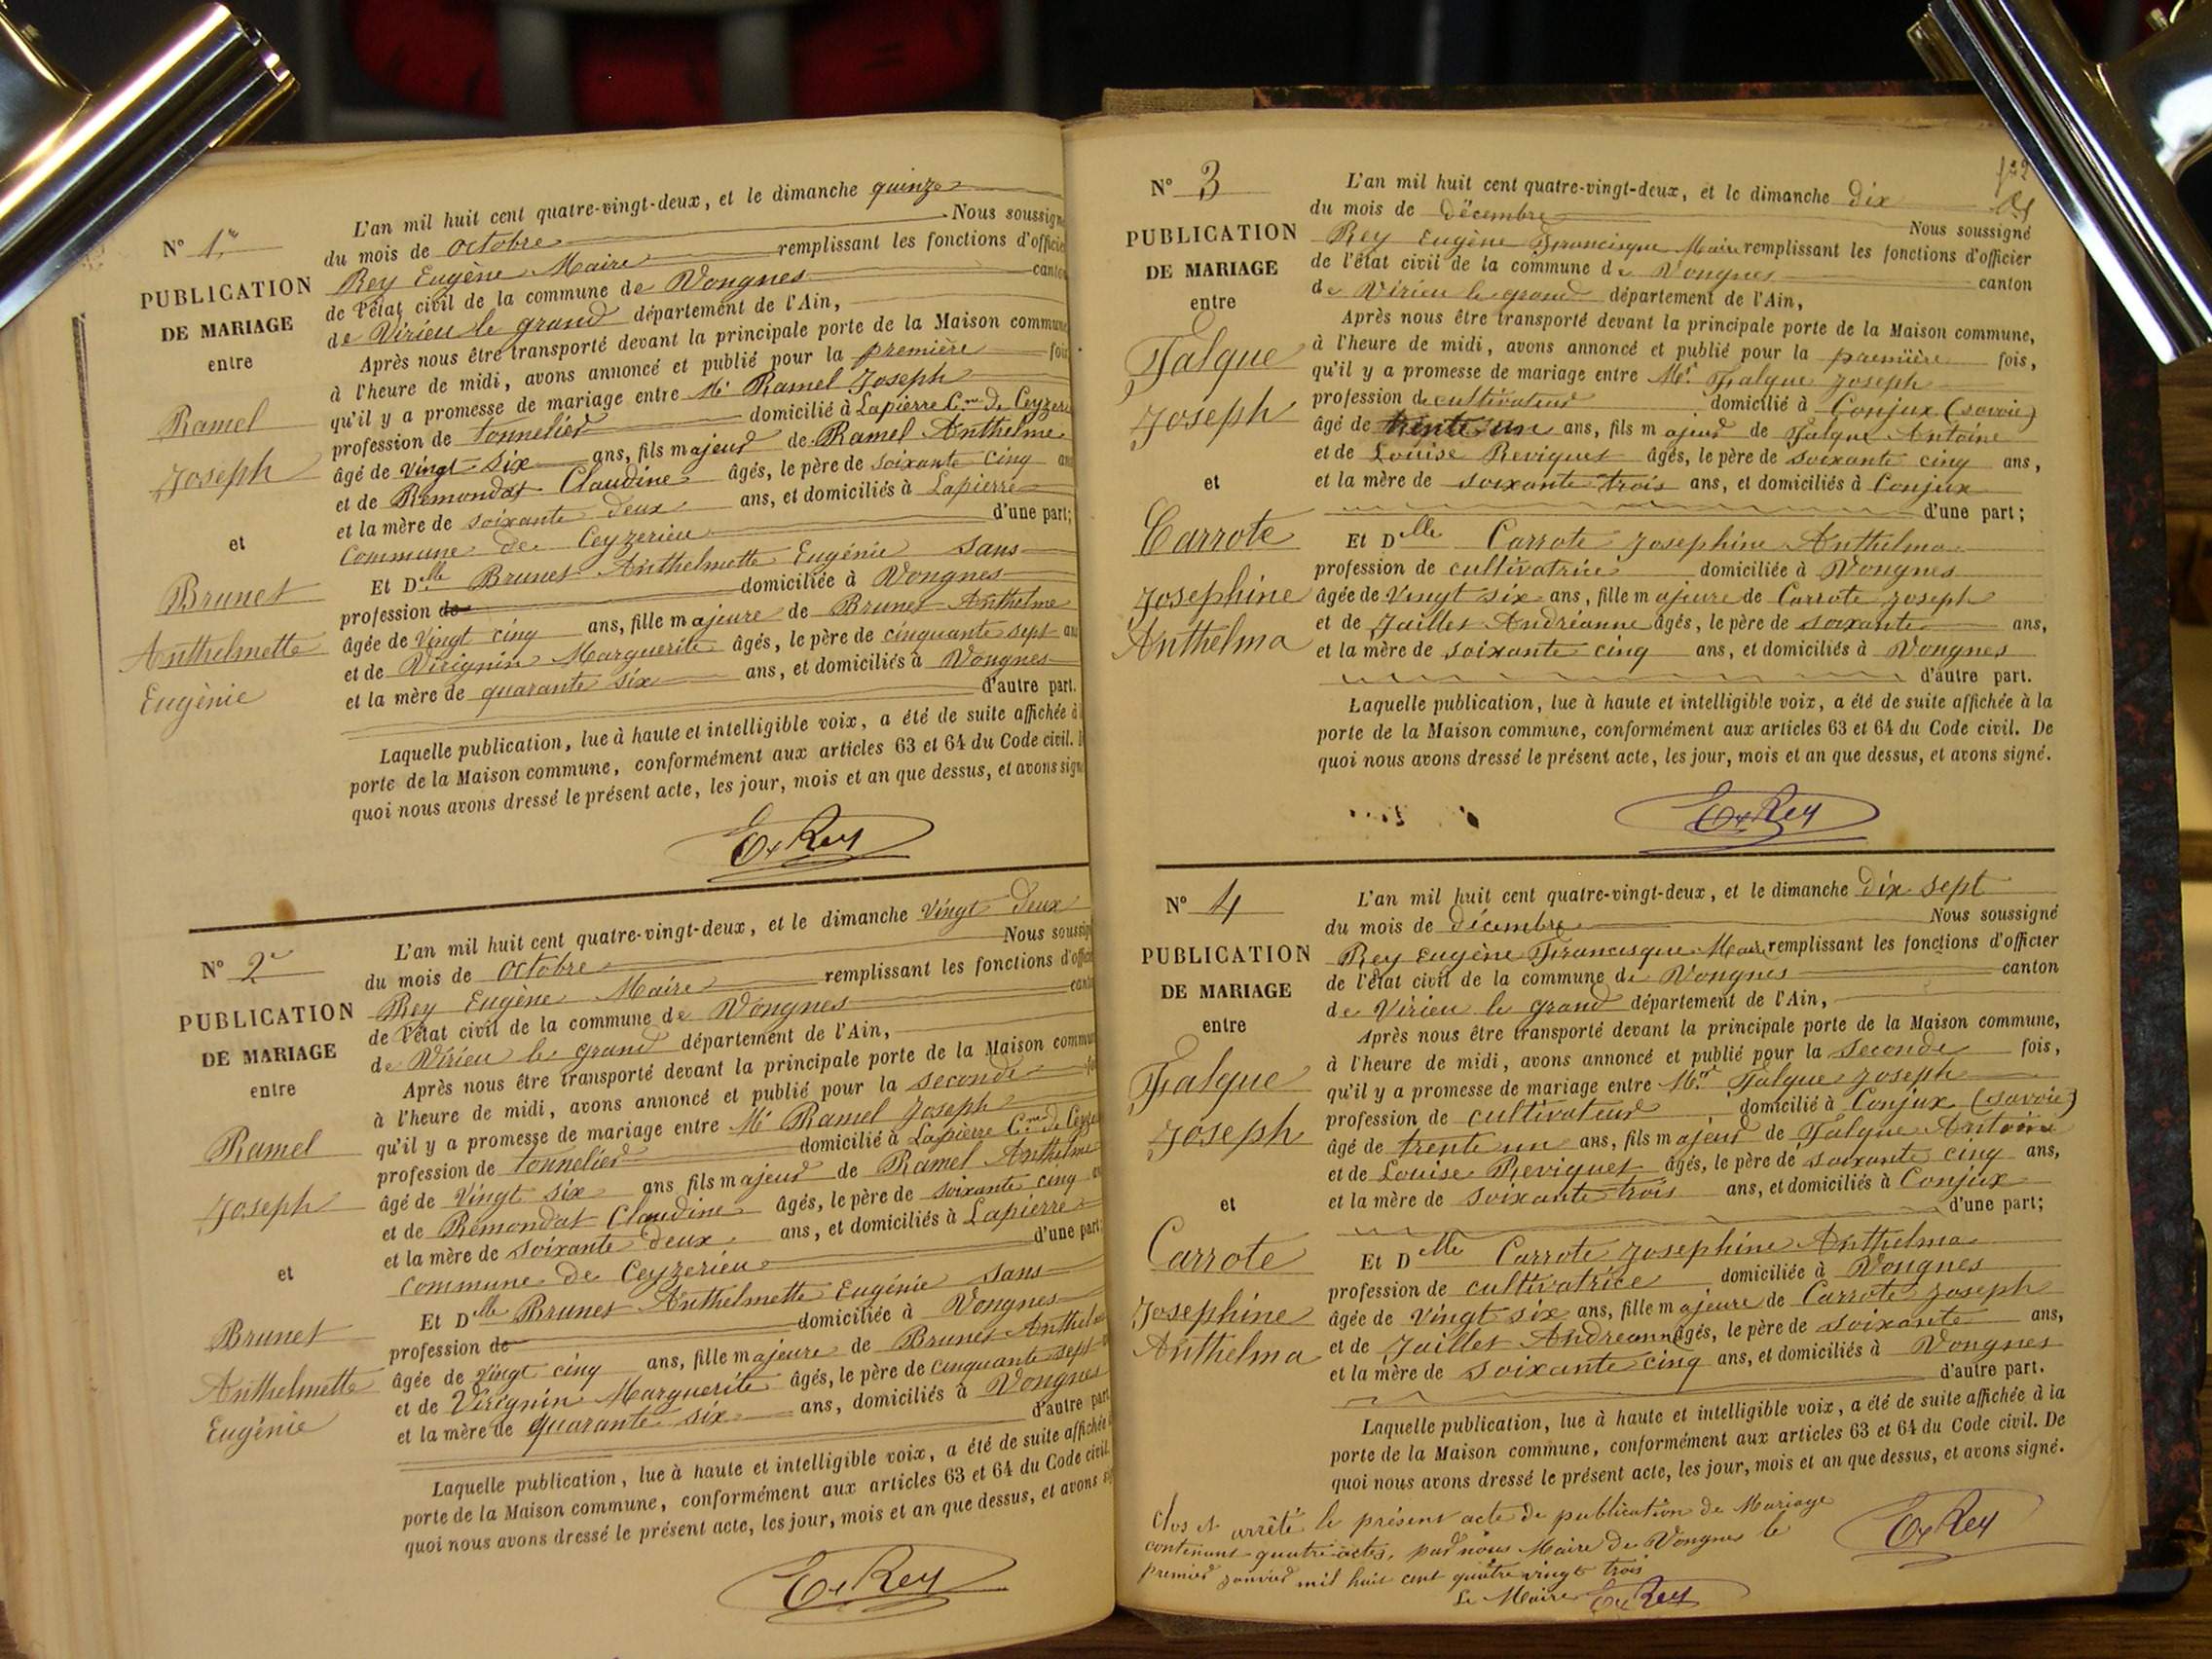 N° 1er
PUBLICATION
DE MARIAGE
entre
Ramel
Joseph
et
Brunet
Anthelmette
Eugènie
L'an mil huit cent quatre-vingt-deux, et le dimanche quinze
du mois de Octobre Nous soussign
Rey Eugène Maire remplissant les fonctions d'officie
de l'état civil de la commune de Vongnes canto
de Virieu le grand département de l'Ain,
Après nous être transporté devant la principale porte de la Maison commune
à l'heure de midi, avons annoncé et publié pour la première fois
qu'il y a promesse de mariage entre Mr Ramel Joseph
profession de tonnelier domicilié à Lapierre Cne De Ceyzeri
âgé de vingt six ans, fils majeur de Ramel Anthelme
et de Remondat Claudine âgés, le père de soixante cinq an
et la mère de soixante deux ans, et domiciliés à Lapierre
Commune de Ceyzerieu d'une part;
Et Delle Brunet Anthelmette Eugénie sans
profession de domiciliée à Vongnes
âgée de vingt cinq ans, fille majeure de Brunet Anthelme
et de Virignin Marguerite âgés, le père de cinquante sept an
et la mère de quarante six ans, et domiciliés à Vongnes
d'autre part.
Laquelle publication, lue à haute et intelligible voix, a été de suite affichée à
porte de la Maison commune, conformément aux articles 63 et 64 du Code civil.
quoi nous avons dressé le présent acte, les jour, mois et an que dessus, et avons sign
Ex Rey
N° 2e
PUBLICATION
DE MARIAGE
entre
Ramel
Joseph
et
Brunet
Anthelmette
Eugénie
L'an mil huit cent quatre-vingt-deux, et le dimanche vingt deux
du mois de Octobre Nous soussig
Rey Eugène Maire remplissant les fonctions d'offici
de l'état civil de la commune de Vongnes cant
de Virieu le grand département de l'Ain,
Après nous être transporté devant la principale porte de la Maison commu
à l'heure de midi, avons annoncé et publié pour la seconde fo
qu'il y a promesse de mariage entre Mr Ramel Joseph
profession de tonnelier domicilié à Lapierre Cne de Ceyze
âgé de vingt six ans fils majeur de Ramel Anthelme
et de Remondat Claudine âgés, le père de soixante cinq an
et la mère de soixante deux ans, et domiciliés à Lapierre
commune de Ceyzerieu d'une part;
Et Delle Brunet Anthelmette Eugénie sans
profession de domiciliée à Vongnes
âgée de vingt cinq ans, fille majeure de Brunet Anthel
et de Virignin Marguerite âgés, le père de cinquante sept
et la mère de quarante six ans, domiciliés à Vongnes
d'autre part
Laquelle publication, lue à haute et intelligible voix, a été de suite affichée
porte de la Maison commune, conformément aux articles 63 et 64 du Code civil.
quoi nous avons dressé le présent acte, les jour, mois et an que dessus, et avons si
Ex Rey
N° 3
PUBLICATION
DE MARIAGE
entre
Falque
Joseph
et
Carrote
Josephine
Anthelma
L'an mil huit cent quatre-vingt-deux, et le dimanche dix
du mois de Décembre Nous soussigné
Rey Eugène Francisque Maire remplissant les fonctions d'officier
de l'état civil de la commune de Vongnes canton
de Virieu le grand département de l'Ain,
Après nous être transporté devant la principale porte de la Maison commune,
à l'heure de midi, avons annoncé et publié pour la première fois,
qu'il y a promesse de mariage entre Mr. Falque Joseph
profession de cultivateur domicilié à Conjux (savoie)
âgé de trente un ans, fils majeur de Falque Antoine
et de Louise Reviquet âgés, le père de soixante cinq ans,
et la mère de soixante trois ans, et domiciliés à Conjux
d'une part;
Et Delle Carrote Josephine Anthelma
profession de cultivatrice domiciliée à Vongnes
âgée de vingt six ans, fille majeure de Carrote Joseph
et de Jaillet Andréanne âgés, le père de soixante ans,
et la mère de soixante cinq ans, et domiciliés à Vongnes
d'autre part.
Laquelle publication, lue à haute et intelligible voix, a été de suite affichée à la
porte de la Maison commune, conformément aux articles 63 et 64 du Code civil. De
quoi nous avons dressé le présent acte, les jour, mois et an que dessus, et avons signé.
Ex Rey
N° 4
PUBLICATION
DE MARIAGE
entre
Falque
Joseph
et
Carrote
Josephine
Anthelma
L'an mil huit cent quatre-vingt-deux, et le dimanche dix sept
du mois de décembre Nous soussigné
Rey Eugène Francisque Maire remplissant les fonctions d'officier
de l'état civil de la commune de Vongnes canton
de Virieu le grand département de l'Ain,
Après nous être transporté devant la principale porte de la Maison commune,
à l'heure de midi, avons annoncé et publié pour la seconde fois,
qu'il y a promesse de mariage entre Mr. Falque Joseph
profession de cultivateur domicilié à Conjux (savoie)
âgé de trente un ans, fils majeur de Falque Antoine
et de Louise Reviquet âgés, le père de soixante cinq ans,
et la mère de soixante trois ans, et domiciliés à Conjux
d'une part;
Et Delle Carrote Josephine Anthelma
profession de cultivatrice domiciliée à Vongnes
âgée de vingt six ans, fille majeure de Carrote Joseph
et de Jaillet Andreanne âgés, le père de soixante ans,
et la mère de soixante cinq ans, et domiciliés à Vongnes
d'autre part.
Laquelle publication, lue à haute et intelligible voix, a été de suite affichée à la
porte de la Maison commune, conformément aux articles 63 et 64 du Code civil. De
quoi nous avons dressé le présent acte, les jour, mois et an que dessus, et avons signé.
Ex Rey
Clos et arrêté le présent acte de publication de Mariage
contenant quatre actes, par nous Maire de Vongnes le
premier janvier mil huit cent quatre vingt trois
Le Maire Ex Rey